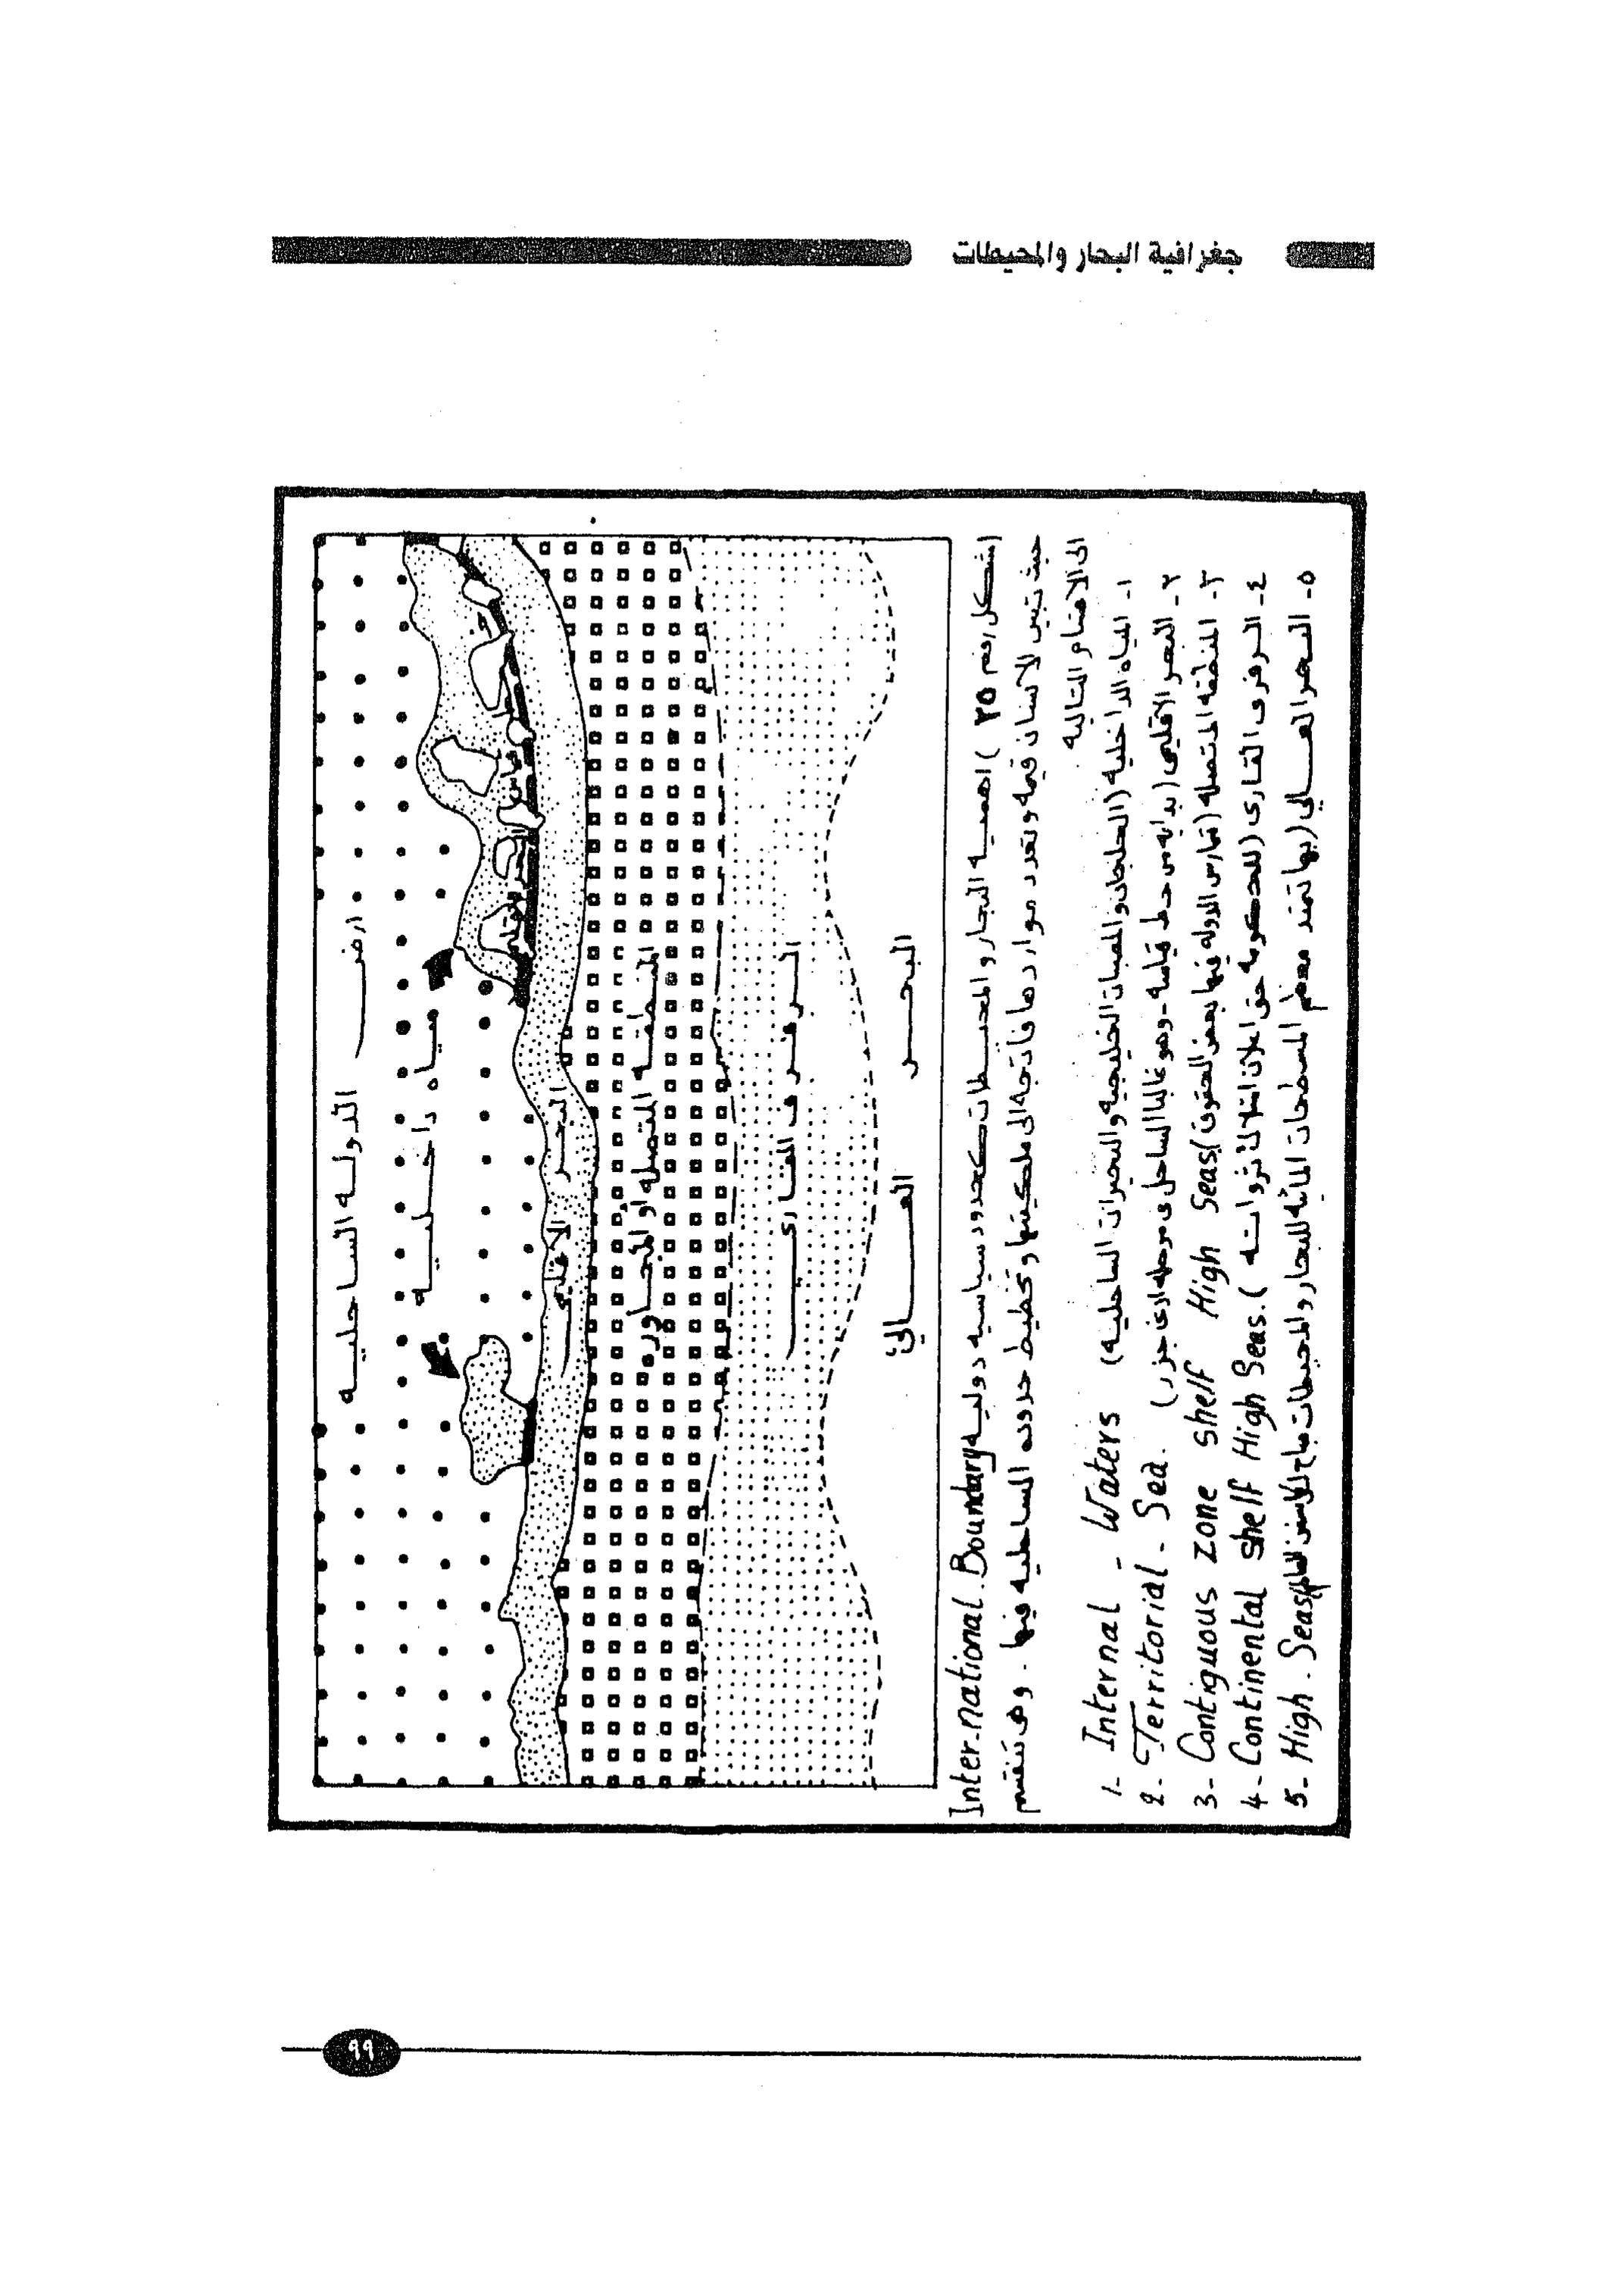 جغرافية البحار والمحيطات
ارض الدوله الساحليه
مياه داخليه
خط قياس البحر الاقليمى
البحر الاقليمى
المنطقه المتصله او المجاوره
الرفرف القارى
البحر العالي
(شكل رقم ٢٥) اهميه البحار والمحيطات كحدود سياسيه دوليه Inter.national.Boundary
حيث تبين للانسان قيمه وتعدد مواردها فاتجه الى ملكيتها وتخطيط حدوده الساحليه فيها . وهى تنقسم
الى الاقسام التاليه
١- المياه الداخلية (الخلجان والمصبات الخليجيه والبحيرات الساحليه) 1- Internal - Waters
٢- البحر الاقليمى (بدايه من خط قياسه - وهو غالبا الساحل فى مرحله ادنى جزر) 2- Territorial - Sea.
٣- المنطقه المتصله (تمارس الدوله فيها بعض الحقوق) 3- Contiguous zone shelf High Seas
٤- الرفرف القارى (للحكومه حق اعلان امتلاك ثرواته) 4- Continental shelf High Seas.
٥- البحر العالي (بها تمتد معظم المسطحات المائيه للبحار والمحيطات مباح للاسفن العالم) 5- High . Seas
٩٩